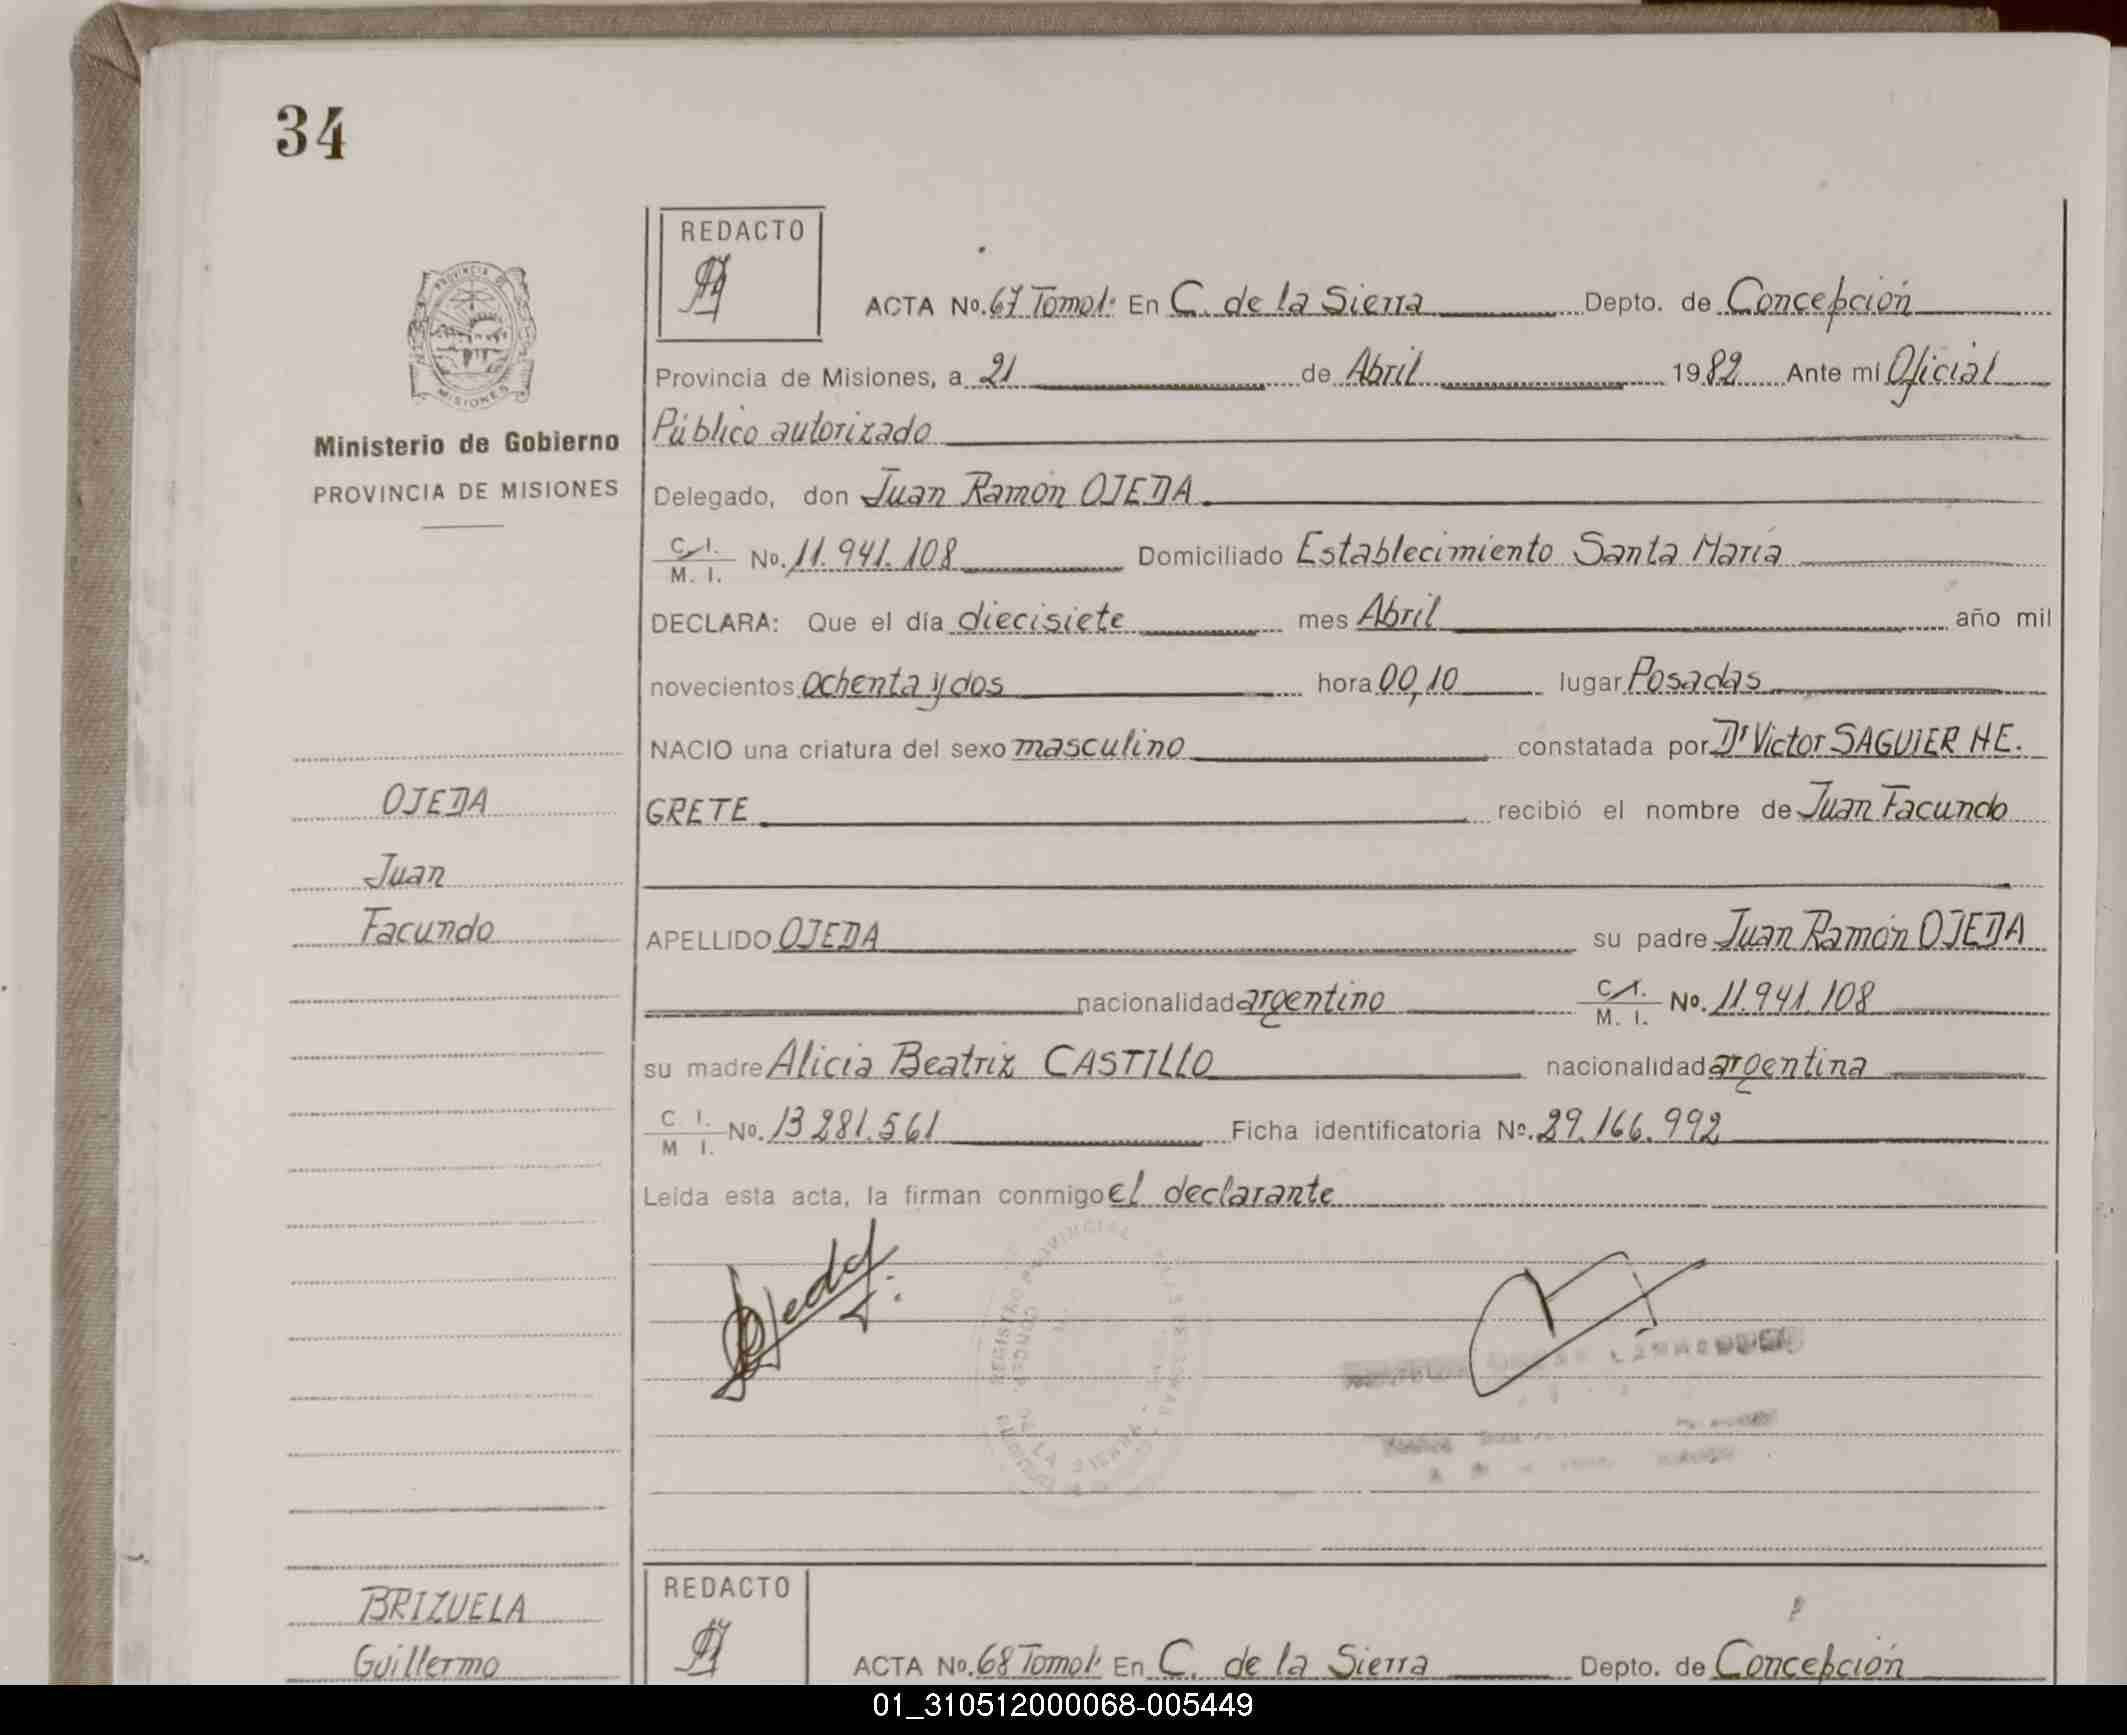 34
REDACTO
ACTA No. 67 Tomo 1º En C. de la Sierra Depto. de Concepción
Provincia de Misiones, a 21 de Abril 1982 Ante mí Oficial
Público autorizado
Ministerio de Gobierno
PROVINCIA DE MISIONES
Delegado, don Juan Ramón OJEDA
C. I. M. I. No. 11.941.108 Domiciliado Establecimiento Santa María
DECLARA: Que el día diecisiete mes Abril año mil
novecientos ochenta y dos hora 00,10 lugar Posadas
NACIO una criatura del sexo masculino constatada por Dr Victor SAGUIER HE.
OJEDA
GRETE recibió el nombre de Juan Facundo
Juan
Facundo
APELLIDO OJEDA su padre Juan Ramón OJEDA
nacionalidad argentino C. I. M. I. No. 11.941.108
su madre Alicia Beatriz CASTILLO nacionalidad argentina
C I. M I. No. 13 281.561 Ficha identificatoria No. 29.166.992
Leída esta acta, la firman conmigo el declarante
REGISTRO PROVINCIAL
DE LA SIERRA
BRIZUELA
Guillermo
REDACTO
ACTA No. 68 Tomo 1º En C. de la Sierra Depto. de Concepción
01_310512000068-005449